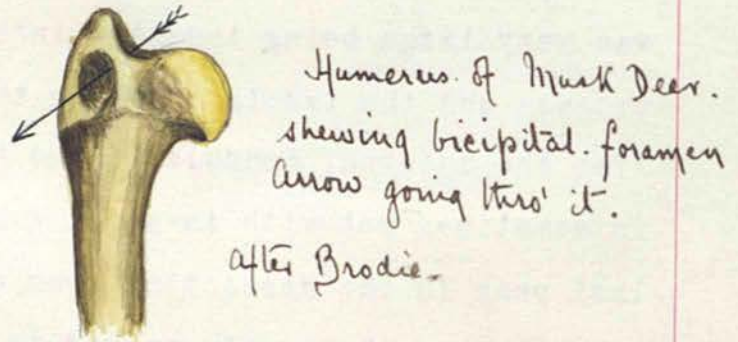 Humerus. of Musk Deer.
shewing bicipital. foramen
arrow going thro' it.
after Brodie.